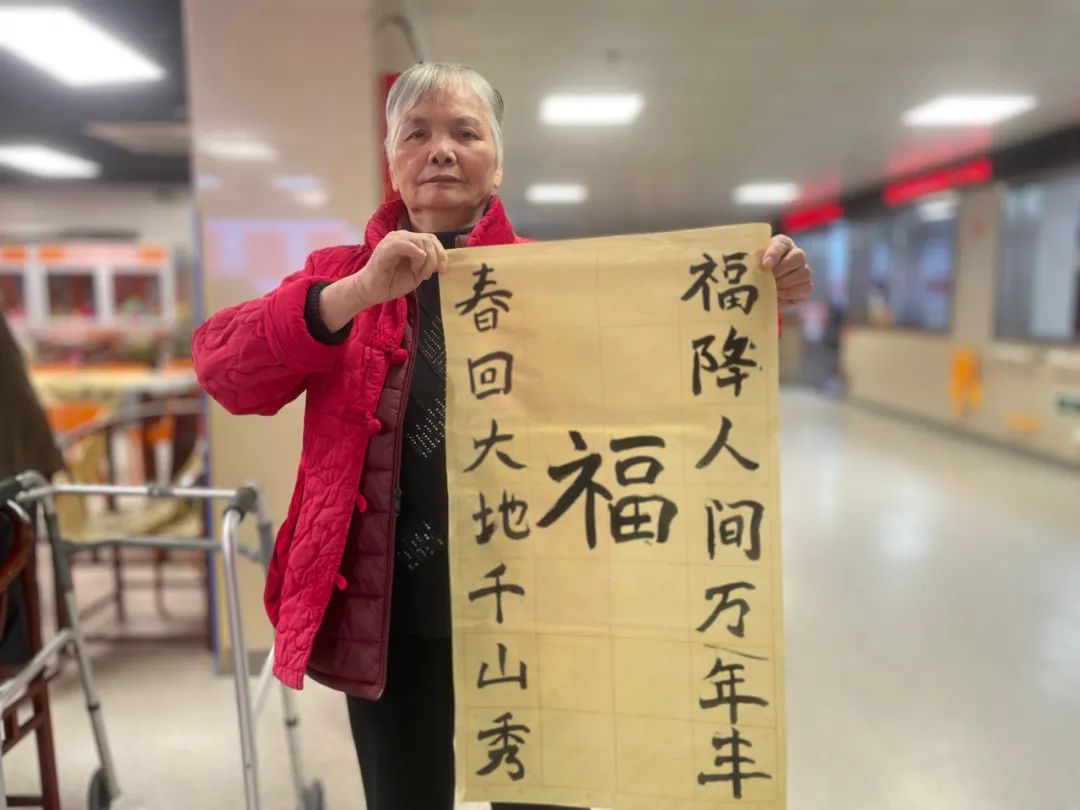 福降人间万年丰
福
春回大地千山秀